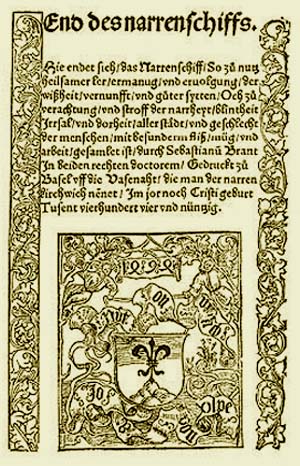 End des narrenschiffs.
Hie endet sich/das Narrenschiff/So zů nutz
heilsamer ler/ermanūg/vnd ervolgūg/der
wißheit/vernunfft/vnd gůter sytten/Ouch zů
verachtung/vnd stroff der narrheyt/blintheit
Irrsal/vnd dorheit/aller städt/vnd geschlecht
der menschen/mit besunderm fliß/müg/vnd
arbeit/gesamlet ist/durch Sebastianū Brant
In beiden rechten doctorem/Gedruckt zů
Basel vff die Vasenaht/die man der narren
kirchwich nēnet/Im jor noch Cristi geburt
Tusent vierhundert vier vnd nüntzig.
on
von
olpe